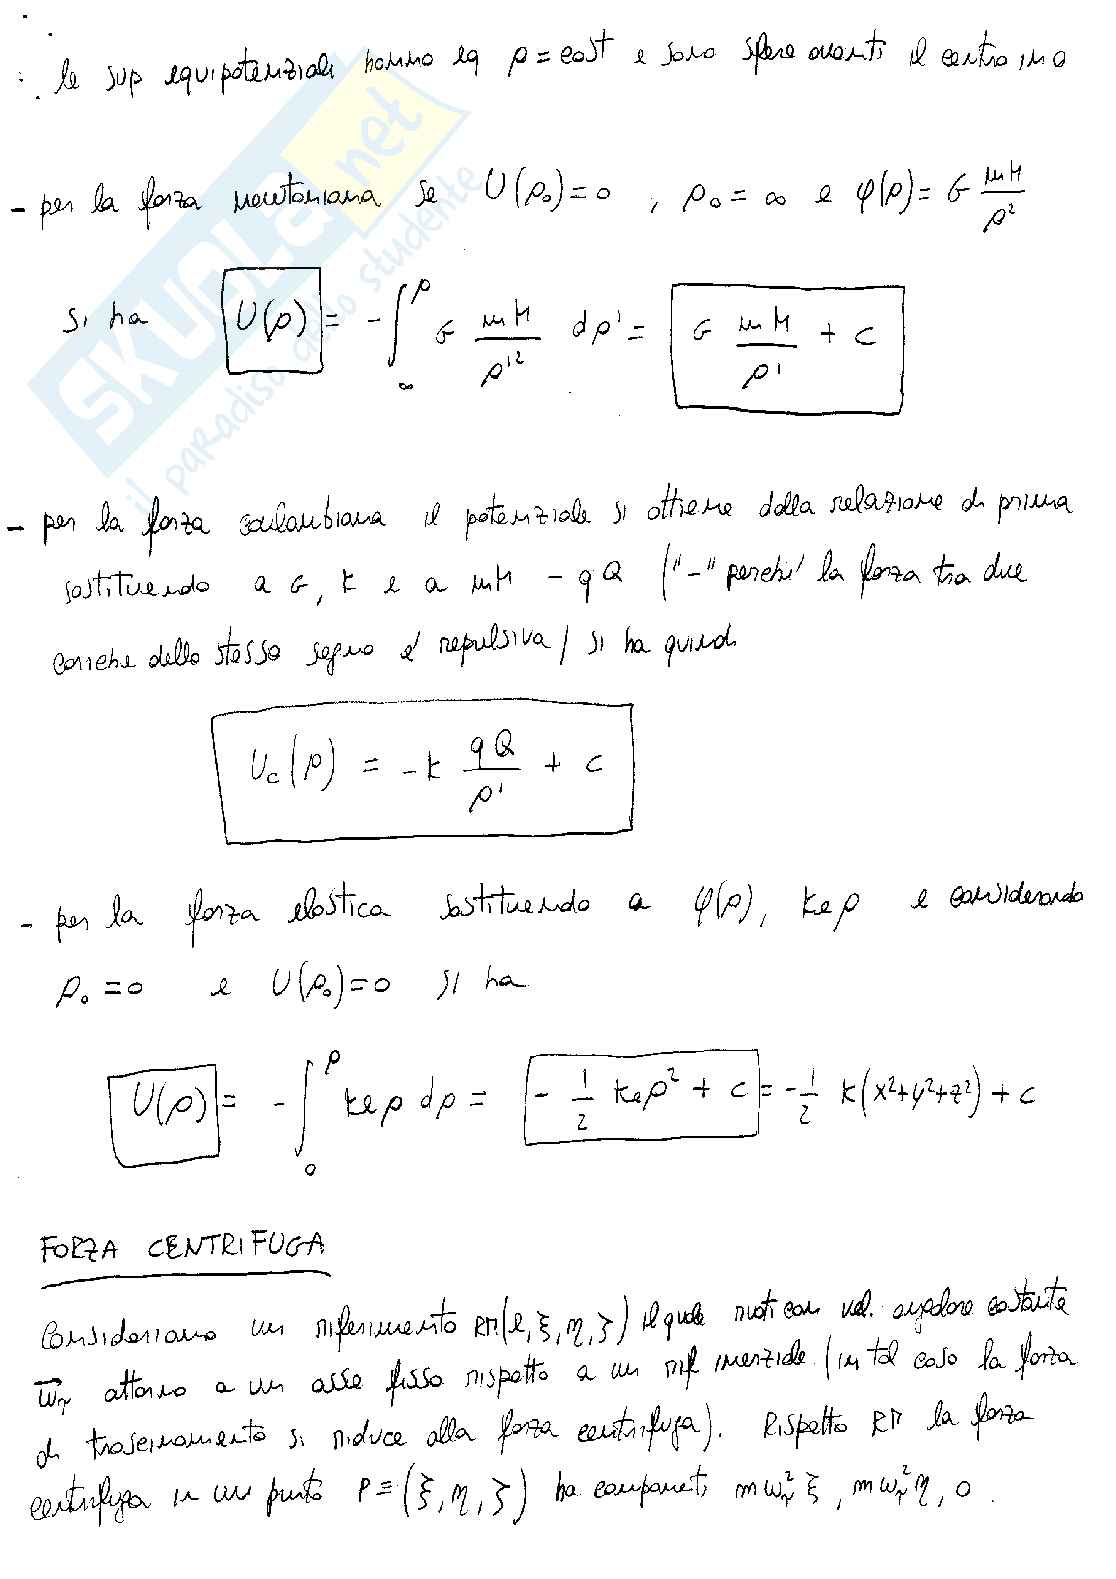 le sup equipotenziali hanno eq ρ = cost e sono sfere aventi il centro in O
- per la forza newtoniana se U(ρ₀)=0 , ρ₀ = ∞ e φ(ρ) = G mM/ρ²
si ha U(ρ) = - ∫_∞^ρ G mM/ρ'² dρ' = G mM/ρ' + c
- per la forza coulombiana il potenziale si ottiene dalla relazione di prima
sostituendo a G, K e a mM - qQ ("-" perche' la forza tra due
cariche dello stesso segno e' repulsiva) si ha quindi
U_c(ρ) = -k qQ/ρ' + c
- per la forza elastica sostituendo a φ(ρ), keρ e considerando
ρ₀ = 0 e U(ρ₀)=0 si ha
U(ρ) = - ∫_0^ρ keρ dρ = - 1/2 keρ² + c = -1/2 K(x²+y²+z²) + c
FORZA CENTRIFUGA
Consideriamo un riferimento RM(l, ξ, η, ζ) il quale ruoti con vel. angolare costante
ω⃗τ attorno a un asse fisso rispetto a un rif inerziale (in tal caso la forza
di trascinamento si riduce alla forza centrifuga). Rispetto RM la forza
centrifuga in un punto P ≡ (ξ, η, ζ) ha componenti mωτ²ξ, mωτ²η, 0.
SKUOLA.net
il paradiso dello studente